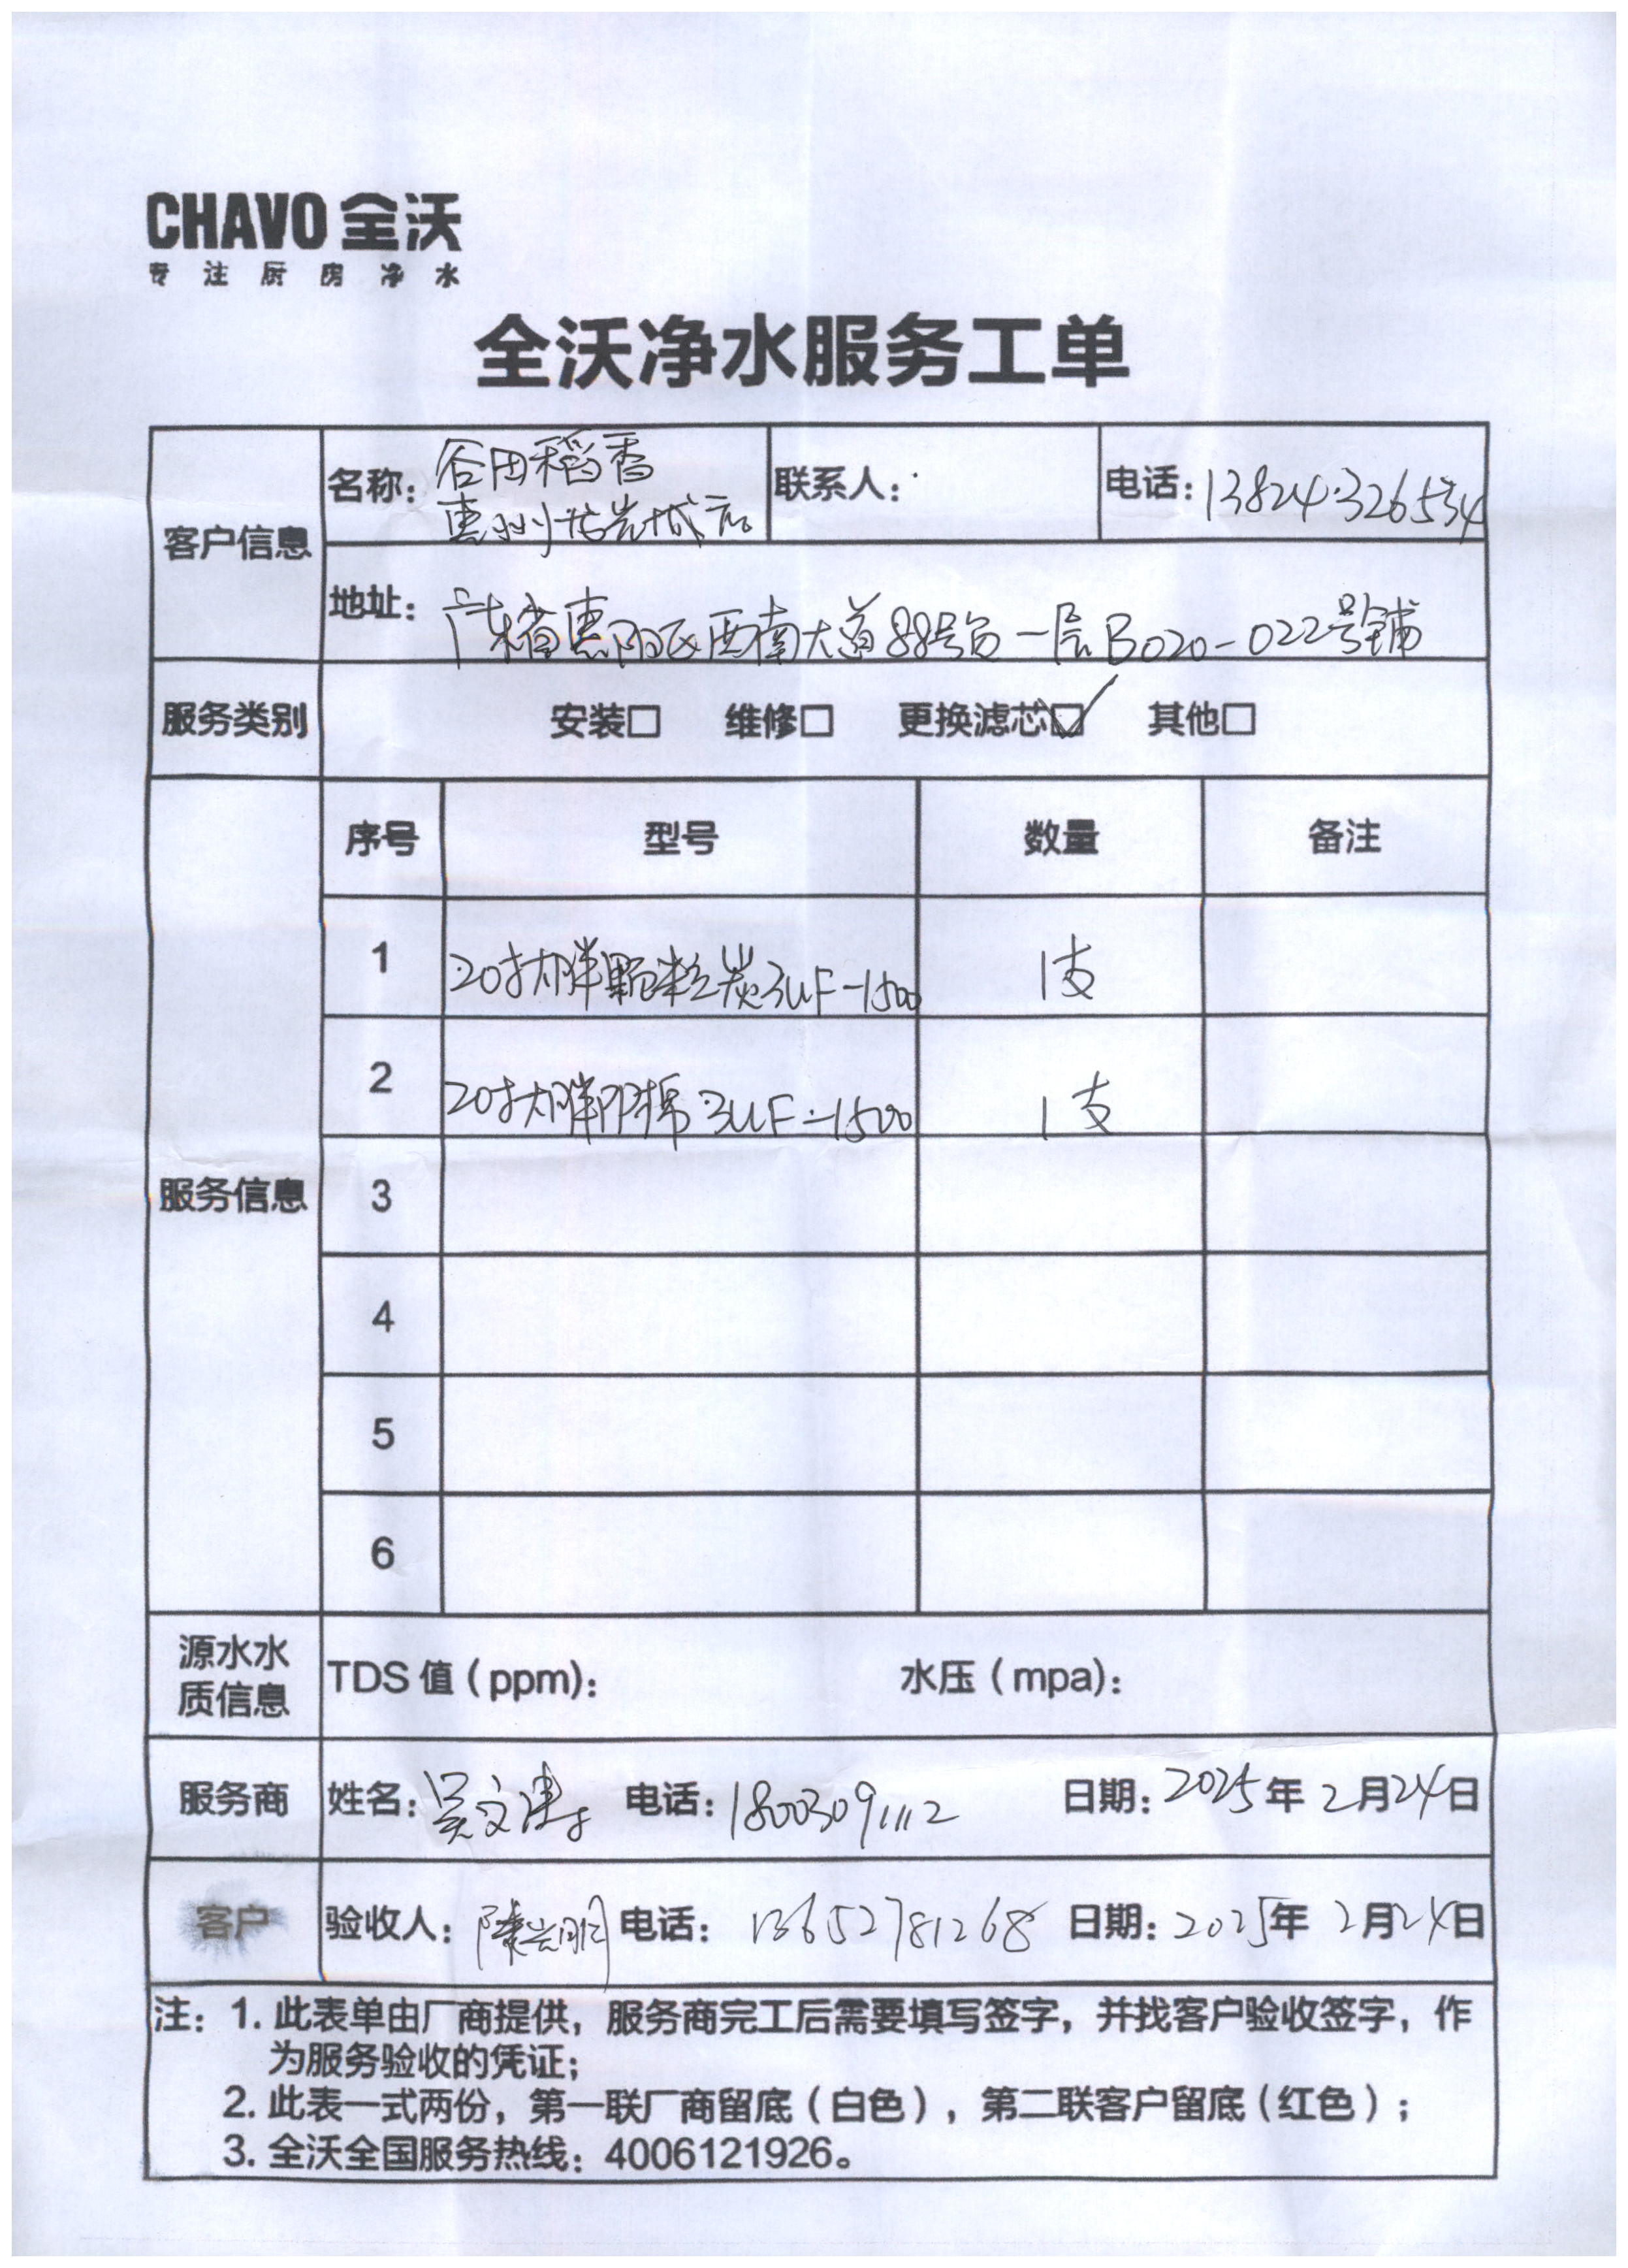 CHAVO 全沃
专注厨房净水
全沃净水服务工单
客户信息
名称: 谷田稻香
惠州 城店
联系人:
电话: 13824326554
地址: 广东省惠阳区西南大道88号负一层B020-022号铺
服务类别 安装□ 维修□ 更换滤芯☑ 其他□
服务信息
序号 型号 数量 备注
1 20寸大胖颗粒炭3UF-1500 1支
2 20寸大胖PP棉3UF-1500 1支
3
4
5
6
源水水
质信息
TDS 值(ppm): 水压(mpa):
服务商 姓名: 吴文 电话: 18003091112 日期: 2025年2月24日
客户 验收人: 电话: 13652781268 日期: 2025年2月24日
注: 1. 此表单由厂商提供, 服务商完工后需要填写签字, 并找客户验收签字, 作
为服务验收的凭证;
2. 此表一式两份, 第一联厂商留底(白色), 第二联客户留底(红色);
3. 全沃全国服务热线: 4006121926。